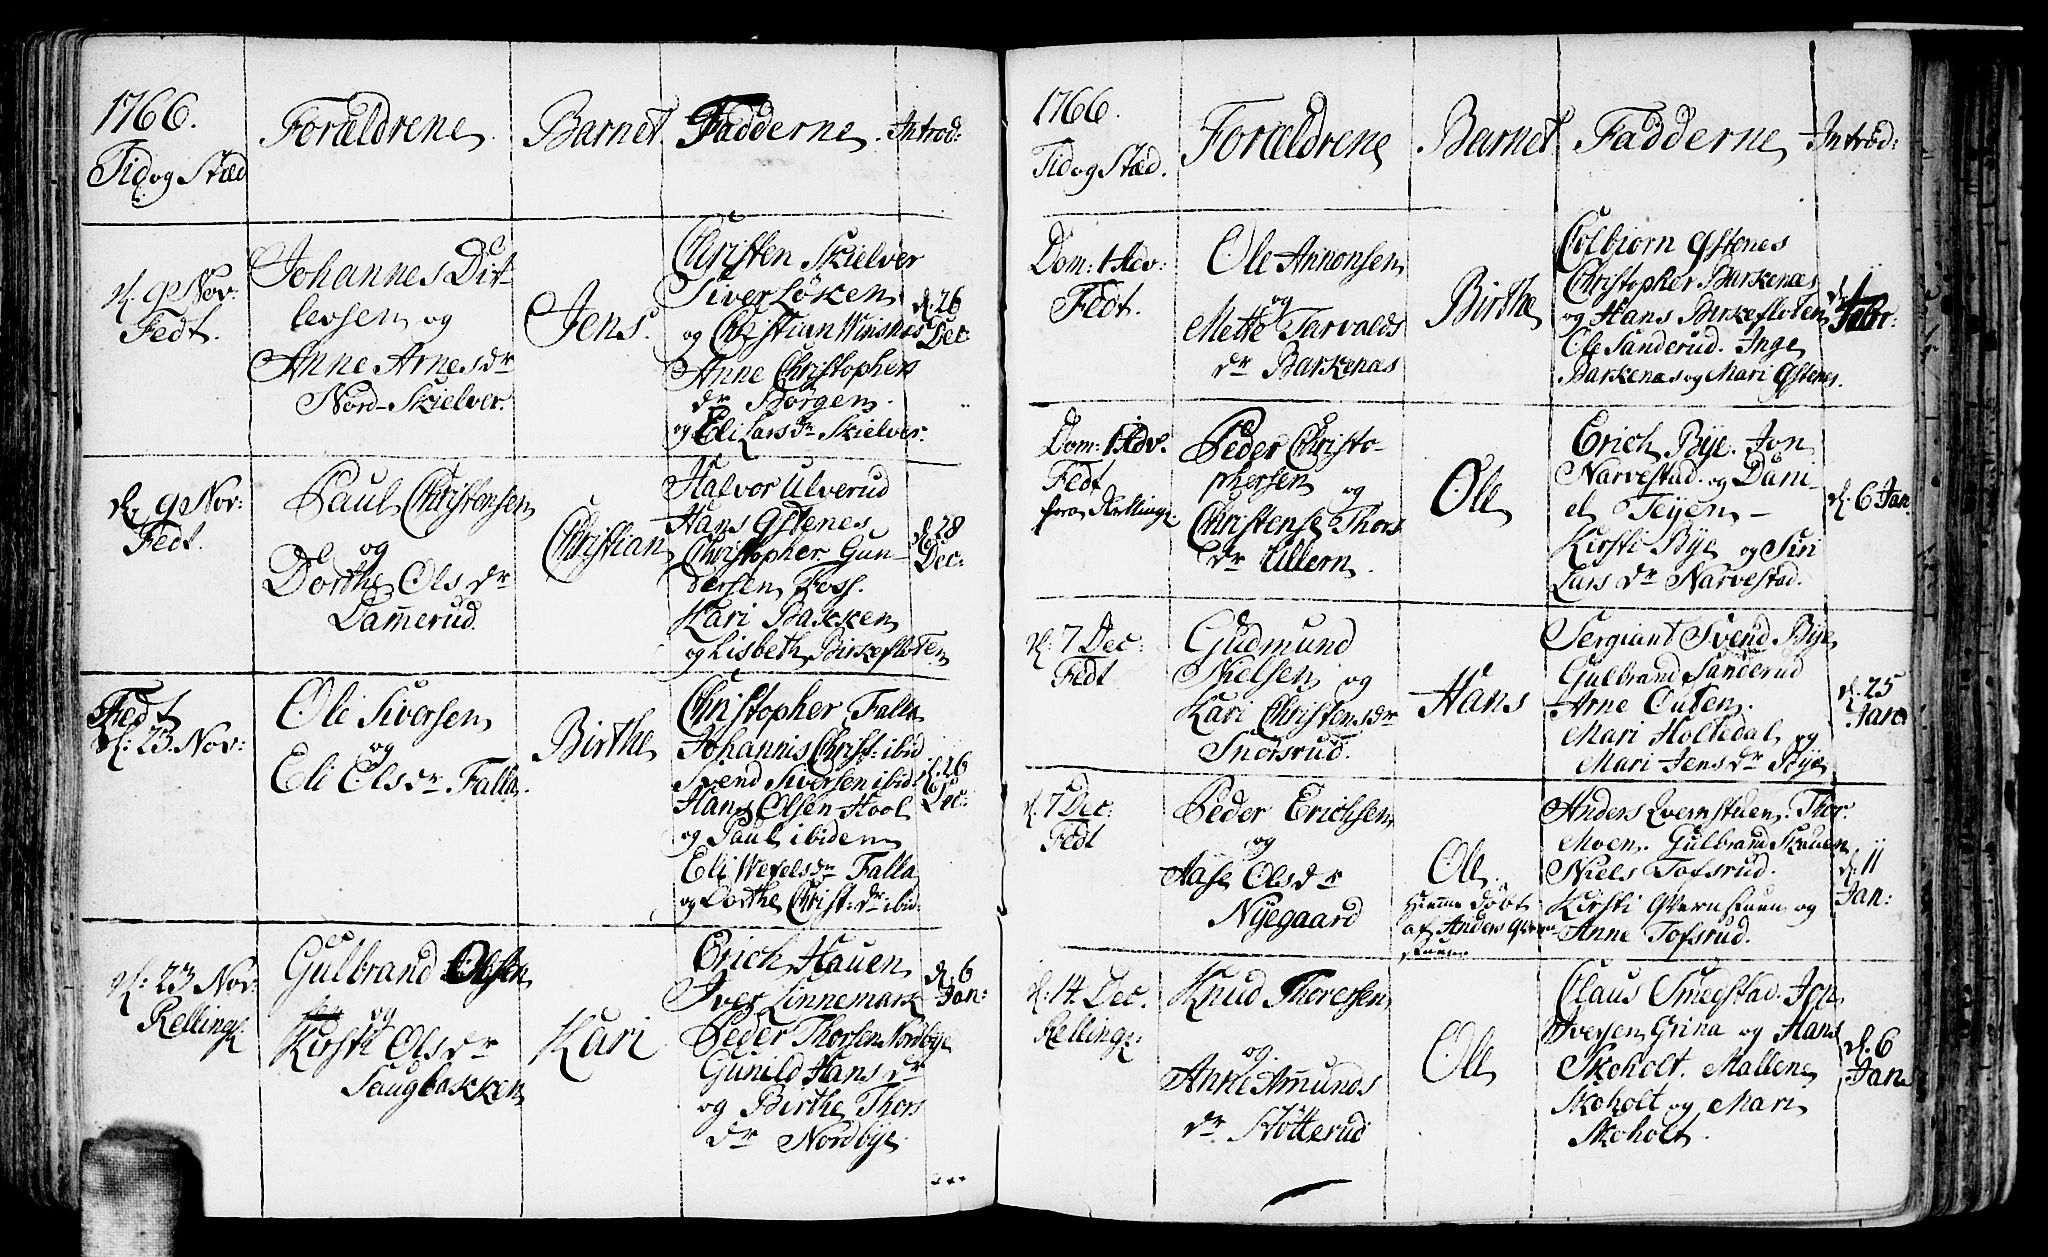 1766.
Tid og Stæd
Forældrene
Barnet
Fadderne
Introd:
d. 9 Nov:
Fedt.
Johannes Dit-
levsen og
Anne Arnesdr
Nord-Skielver.
Jens.
Christen Skielver
Siver Løken
og Christian Winsnes
Anne Christophers
dr Borgen.
og Eli Lars dr Skielver.
d. 26
Dec
d. 9 Nov:
Fedt.
Paul Christensen
og
Dorthe Ols dr
Dammerud.
Christian
Halvor Ulverud
Hans Østenes
Christopher Gun-
dersen Foss.
Kari Bakken
og Lisbeth Birkefloten
d. 28
Dec:
Fedt
d: 23 Nov:
Ole Siversen
og
Eli Olsdr Falla.
Birthe
Christopher Falla
Johannis Christ: ibid
Svend Siversen ibid:
Hans Olsen Hool
og Paul ibidem
Eli Wefelsdr Falla
og Dorthe Christ: dr ibid:
d. 26
Dec:
d: 23 Nov:
Relling:
Gulbrand Olsen
og
Kirsti Olsdr
Haugbakken
Kari
Erich Hauen
Iver Linnemark
Peder Thorsen Nordbye
Gunild Hans dr
og Birthe Thors
dr Nordbye.
d. 6
Jan:
1766.
Tid og Stæd.
Forældrene
Barnet
Fadderne
Introd:
Dom: 1 Adv:
Fedt.
Ole Annonsen
og
Mette Tarvalds
dr Barkenæs
Birthe
Colbiørn Østenes
Christopher Barkenæs
og Hans Birkefloten
Ole Sanderud. Inge
Barkenæs og Mari Østenes.
d. 1
Febr:
Dom: 1 Adv.
Fedt
fra Relling:
Peder Christo-
phersen
og
Christense Thors
dr Ullern.
Ole
Erich Bye. Jon
Narvestad. og Dani-
el Teyen –
Kirsti Bye og Siri
Lars dr Narvestad.
d. 6 Jan.
d: 7 Dec:
Fedt
Gudmund
Nielsen og
Kari Christensdr
Snorsrud.
Hans
Sergiant Svend Bye
Gulbrand Sanderud
Arne Outen.
Mari Holtedal og
Mari Jens dr Bye
d. 25
Jan
d. 7 Dec:
Fedt
Peder Erichsen
og
Aase Olsdr
Nyegaard
Ole
hiemme døbt
af Anders Qvern-
stuen
Anders Qvernstuen. Thor
Moen. Gulbrand Skauen
Niels Tofsrud.
Kirsti Qvernstuen og
Anne Tofsrud.
d. 11
Jan:
d: 14. Dec.
Relling:
Knud Thoresen
og
Anne Amunds
dr Kløtterud
Ole
Claus Smegstad. Jon
Iversen Grina og Hans
Skoholt. Mallene
Skoholt og Mari
Skoholt.
d. 6
Jan